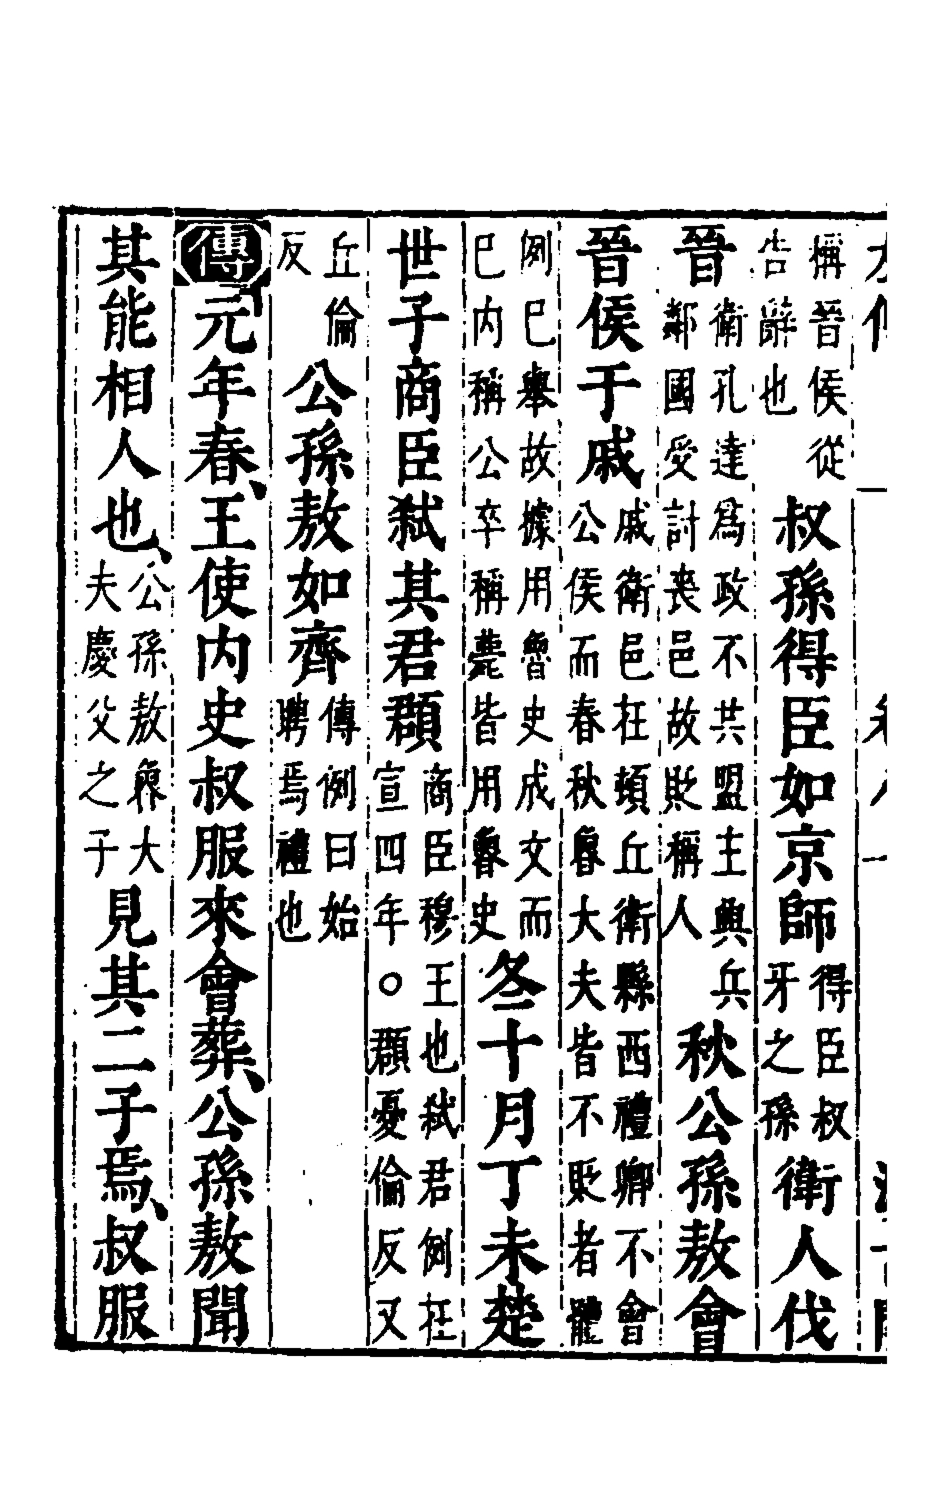 稱晉侯從告辭也叔孫得臣如京師得臣叔牙之孫衛人伐
晉衛孔達爲政不共盟主興兵鄰國受討喪邑故貶稱人秋公孫敖會
晉侯于戚戚衛邑在頓丘衛縣西禮卿不會公侯而春秋魯大夫皆不貶者體
例已舉故據用魯史成文而已内稱公卒稱薨皆用魯史冬十月丁未楚
世子商臣弑其君頵商臣穆王也弑君例在宣四年○頵憂倫反又
丘倫反公孫敖如齊傳例曰始聘焉禮也
傳元年春、王使内史叔服來會葬、公孫敖聞
其能相人也、公孫敖魯大夫慶父之子見其二子焉、叔服